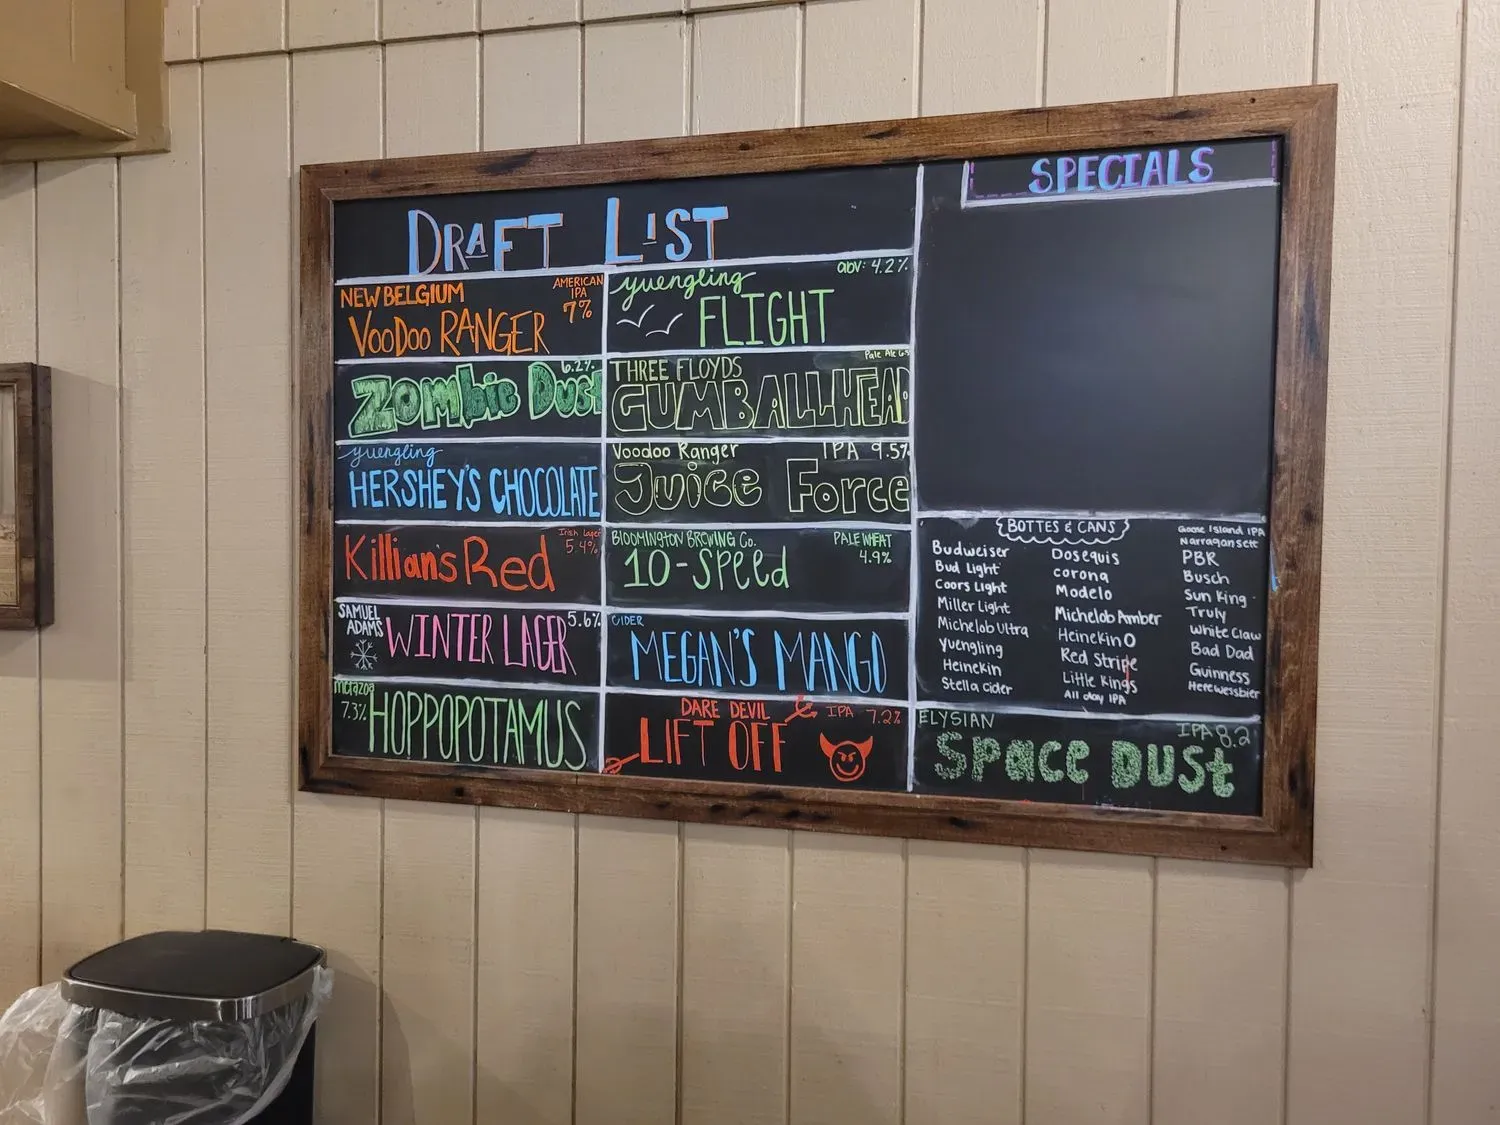 DRAFT LIST
NEW BELGIUM
AMERICAN
IPA
7%
VOODOO RANGER
6.2%
Zombie Dust
yuengling
HERSHEY'S CHOCOLATE
Irish Lager
5.4%
Killian's Red
SAMUEL
ADAMS
WINTER LAGER
5.6%
metazoa
7.3%
HOPPOPOTAMUS
yuengling
abv: 4.2%
FLIGHT
THREE FLOYDS
Pale Ale
GUMBALLHEAD
Voodoo Ranger
IPA 9.5%
Juice Force
BLOOMINGTON BREWING CO.
PALE WHEAT
4.9%
10-Speed
CIDER
MEGAN'S MANGO
DARE DEVIL
IPA 7.2%
LIFT OFF
SPECIALS
BOTTES & CANS
Budweiser
Bud Light
Coors Light
Miller Light
Michelob Ultra
Yuengling
Heinekin
Stella Cider
Dosequis
corona
Modelo
Michelob Amber
Heinekin 0
Red Stripe
Little Kings
All day IPA
Goose Island IPA
Narragansett
PBR
Busch
Sun King
Truly
White Claw
Bad Dad
Guinness
Herewessbier
ELYSIAN
IPA 8.2
Space Dust